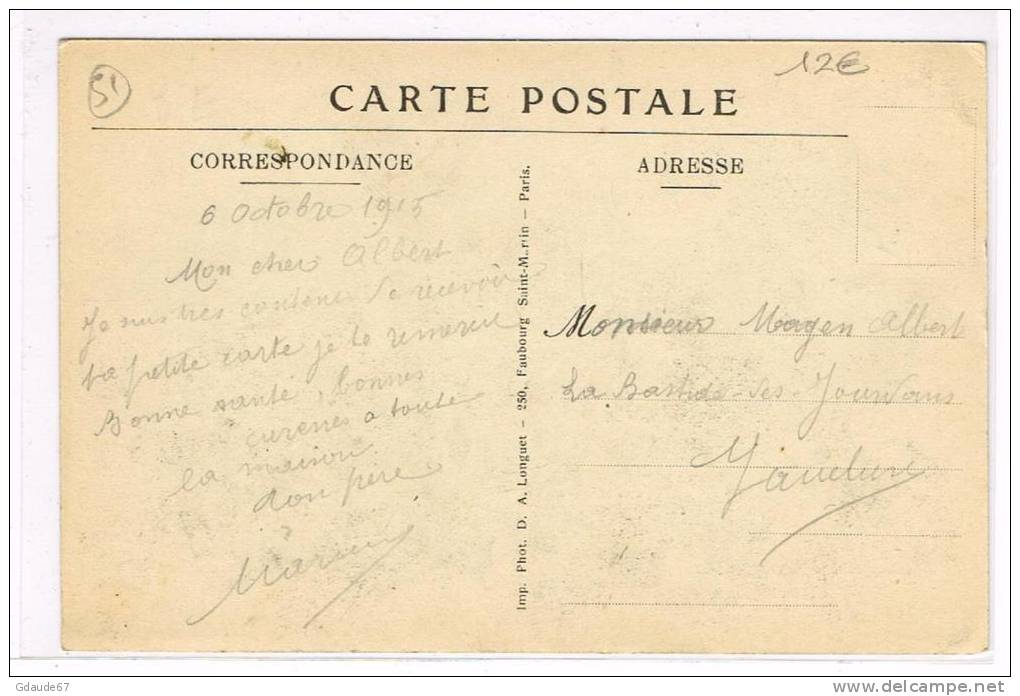 51
12€
CARTE POSTALE
CORRESPONDANCE
ADRESSE
6 Octobre 1915
Mon cher Albert
Je suis tres content de recevoir
ta petite carte je te remercie
Bonne santé, bonnes
caresses a toute
la maison
ton père
Marius
Imp. Phot. D. A. Longuet - 250, Faubourg Saint-Martin - Paris.
Monsieur Magen Albert
La Bastide-des-Jourdans
Vaucluse
Gdaude67
www.delcampe.net